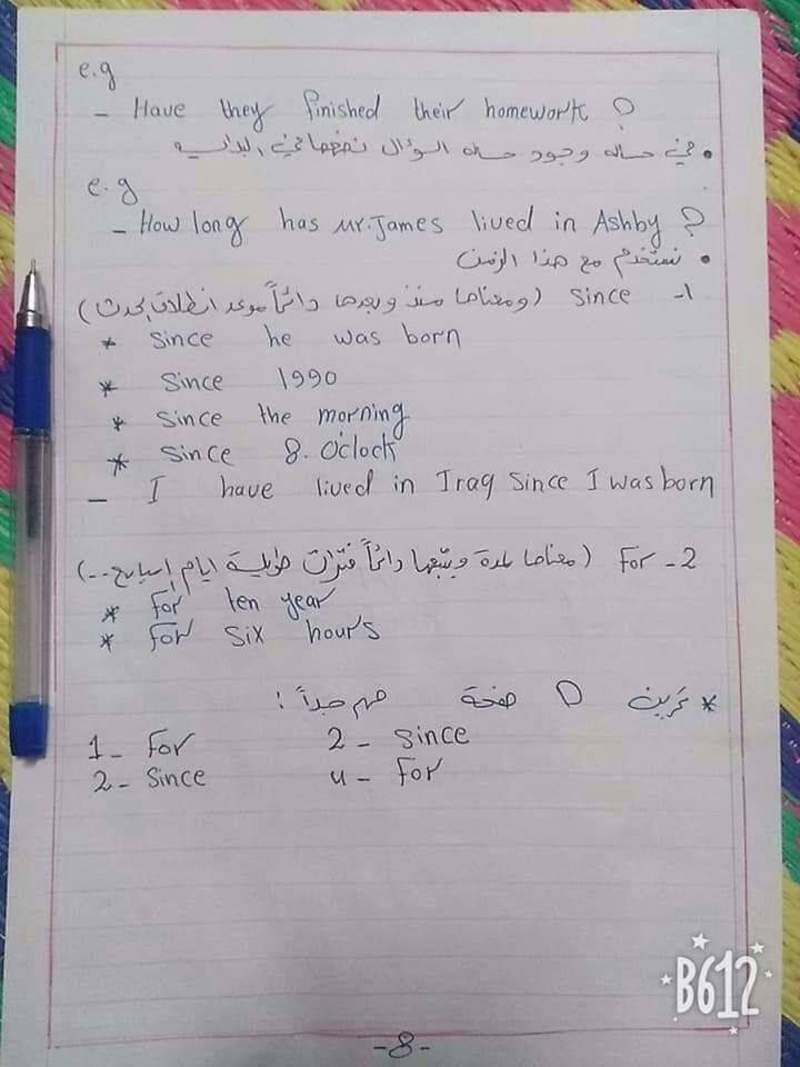 e.g
- Have they finished their homework ?
• في حاله وجود حاله السؤال نضعها في البدايه
e.g
- How long has Mr. James lived in Ashby ?
• نستخدم مع هذا الزمن
1- since (ومعناها منذ وبعدها دائماً موعد انطلاق الحدث)
* since he was born
* Since 1990
* since the morning
* since 8. O'clock
- I have lived in Iraq since I was born
2- For (معناها لمدة ويتبعها دائماً فترات طويلة ايام اسابيع --)
* for ten year
* for six hours
* تمرين D صفحة مهم جداً :
1- For 2- since
2- Since 4- for
-8-
B612